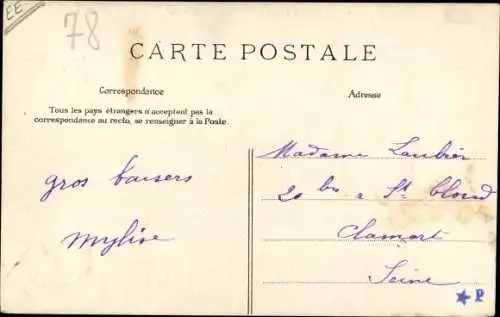 EE
78
CARTE POSTALE
Correspondance
Tous les pays étrangers n'acceptent pas la
correspondance au recto, se renseigner à la Poste.
gros baisers
Adresse
Madame
20 bis r St Cloud
Clamart
Seine
P